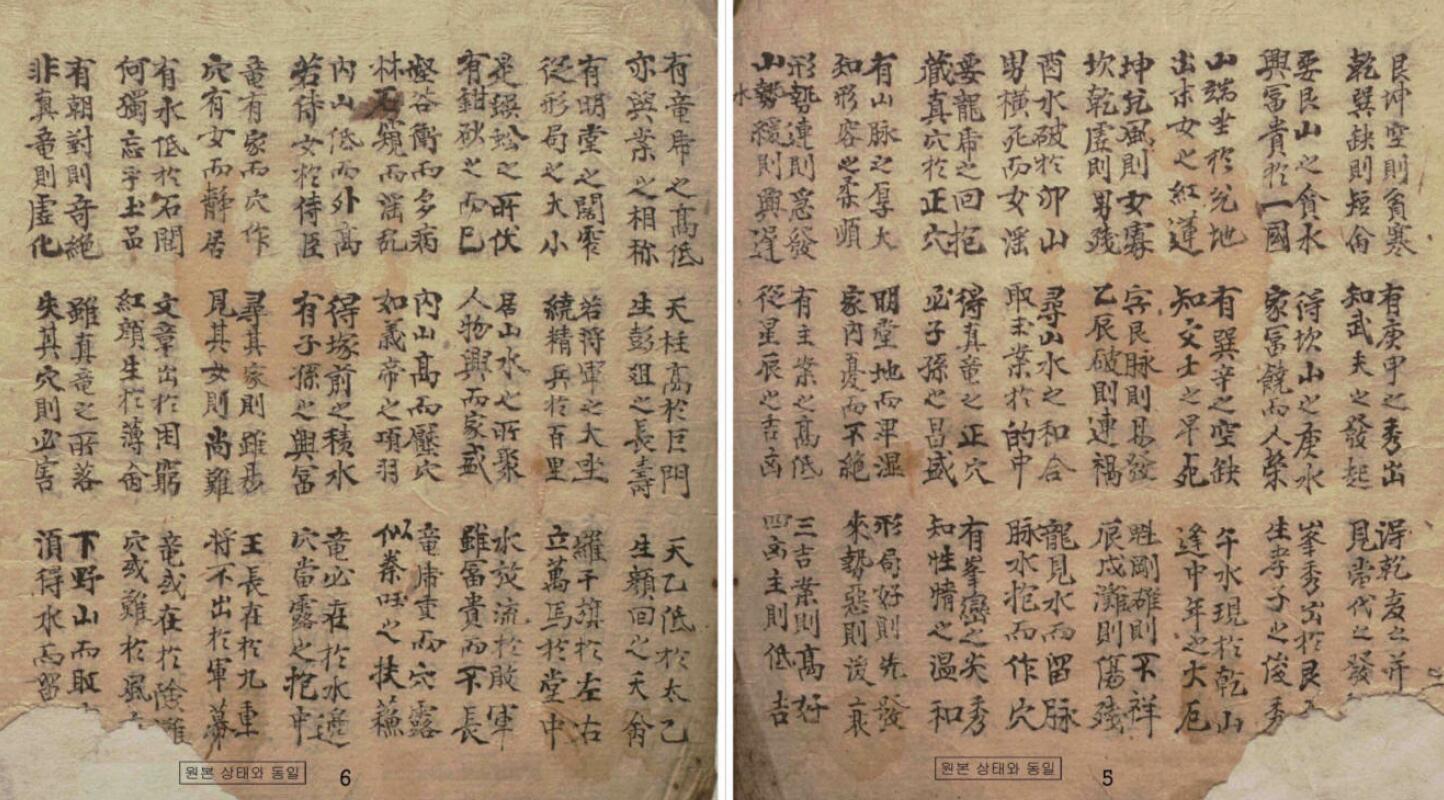 艮坤空則貧寒
乾巽缺則短命
有庚甲之秀出
知武夫之發起
得乾亥之并
見當代之發
要艮山之貪水
興冨貴於一國
得坎山之庚水
家冨饒而人榮
峯秀出於艮
生孝子之俊秀
山端坐於兌地
出宋女之紅蓮
有巽辛之空缺
知文士之早死
午水現於乾山
逢中年之大厄
坤兌風則女寡
坎乾虛則男殘
亥艮脉則易發
乙辰破則連禍
魁剛碓則不祥
辰戌灘則傷殘
酉水破於卯山
男橫死而女淫
尋山水之和合
取主案於的中
龍見水而留脉
脉水抱而作穴
要龍席之回抱
藏真穴於正穴
得真竜之正穴
必子孫之昌盛
有峯巒之尖秀
知性情之温和
有山脉之厚大
知形容之柔順
明堂地而畢湿
家內憂而不絶
形局好則先發
來勢惡則後衰
形勢連則急發
山勢緩則興遅
水
有主案之高低
從星辰之吉凶
三吉案則高好
四凶主則低吉
원본 상태와 동일
5
有竜席之高低
亦與案之相称
天柱高於巨門
生彭祖之長壽
天乙低於太乙
生顔回之夭命
有明堂之闊窄
從形局之大小
若將軍之大坐
繞精兵於百里
羅千旗於左右
立萬馬於堂中
是蜈蚣之所伏
有鉗砂之而已
居山水之所聚
人物興而家盛
水放流於敢軍
雖冨貴而不長
壑谷衝而多病
林石窺而淫乱
內山高而壓穴
如義帝之項羽
竜席重而穴露
似秦王之扶蘓
內山低而外高
若侍女於侍臣
得塚前之積水
有子孫之興冨
竜必在於水邊
穴當露之抱中
竜有家而穴作
穴有女而靜居
尋其家則雖易
見其女則尚難
王長在於九重
將不出於軍幕
有水低於石間
何獨忘乎土品
文章出於困窮
紅顔生於薄命
竜或在於險難
穴或難於風
有朝對則竒絶
非真竜則虛化
雖真竜之所落
失其穴則必害
下野山而取
須得水而留
원본 상태와 동일
6